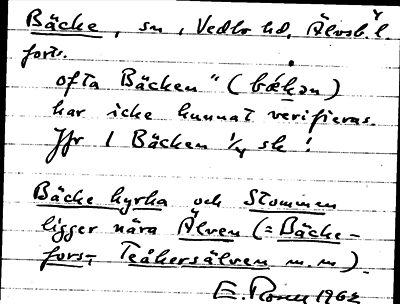 Bäcke, sn, Vedbo hd, Älvsb. l.
forts.
ofta Bäcken" (bækən)
har icke kunnat verifieras.
Jfr 1 Bäcken 1/4 sk!
Bäcke kyrka och Stommen
ligger nära Älven (= Bäcke-
fors- Teåkersälven m.m)
E. 1962